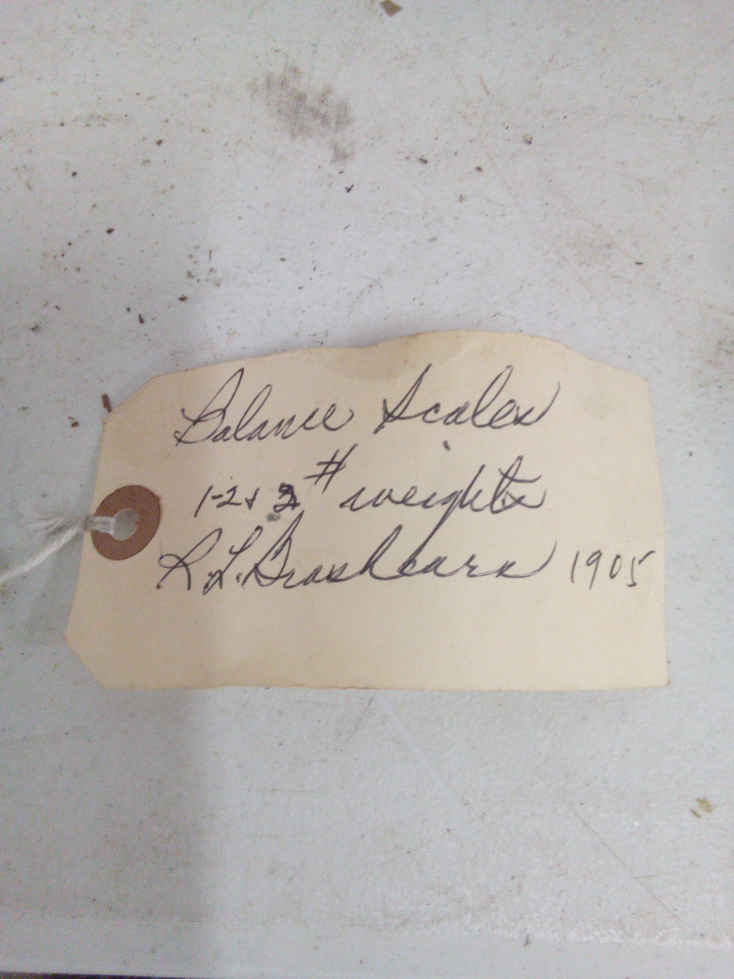 Balance Scales
1-2 & 3 # weights
R L. Brashears 1905